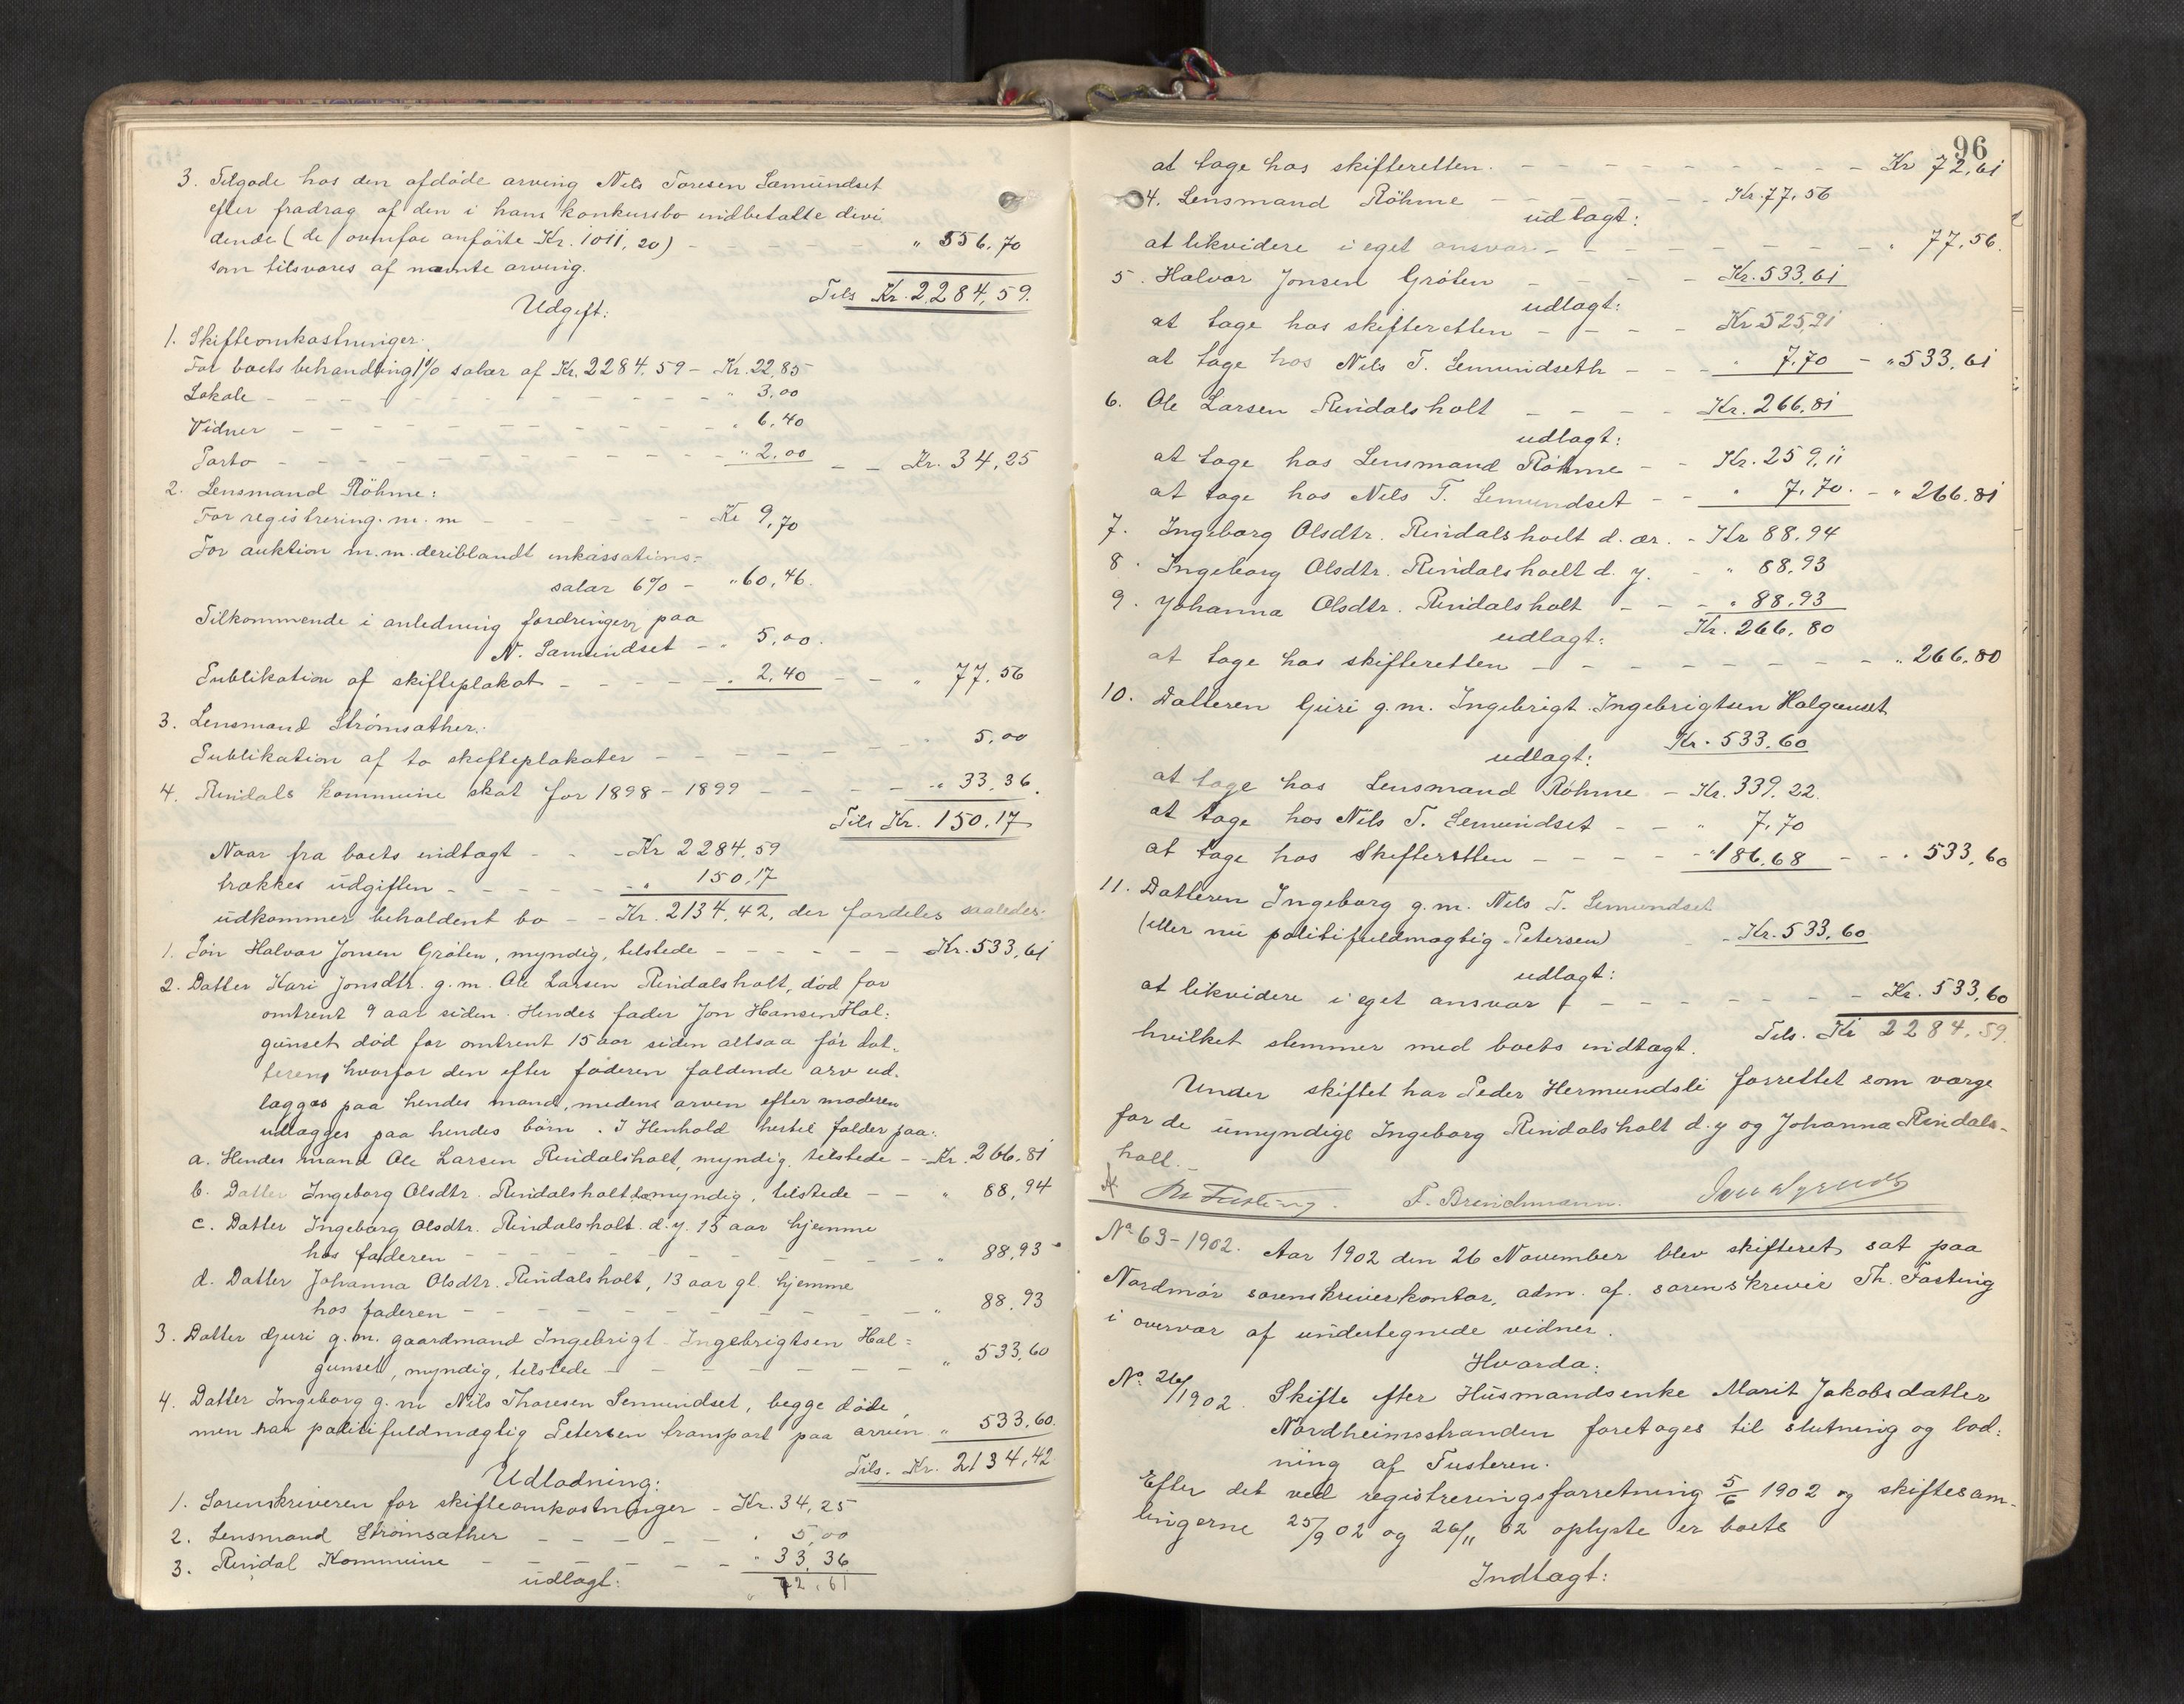 3. Tilgode hos den afdöde arving Nils Toresen Sæmundset
efter fradrag af den i hans konkursbo indbetalte divi
dende (de ovenfor anförte Kr. 1011,20) - - - - - - " 556,70
som tilsvares af nævnte arving.
Tils Kr. 2284,59.
Udgift:
1. Skifteomkostninger.
For boets behandling 1% salær af Kr. 2284.59 - Kr. 22,85
Lokale - - - - - - - - " 3,00
Vidner - - - - - - - - " 6,40
Porto - - - - - - - - " 2,00 - - Kr. 34,25
2. Lensmand Röhme:
For registrering m. m - - - - - - Kr 9,70
For auktion m.m. deriblandt inkassations-
salær 6% - " 60,46.
Tilkommende i anledning fordringer paa
N. Sæmundset - " 5,00.
Publikation af skifteplakat - - - - " 2,40 - - " 77,56
3. Lensmand Strømsæther:
Publikation af to skifteplakater - - - - - - " 5,00
4. Rindals kommune skat for 1898-1899 - - - - " 33.36.
Tils Kr. 150.17
Naar fra boets indtægt - - - Kr 2284,59
trækkes udgiften - - - - - - " 150,17
udkommer beholdent bo - - Kr. 2134.42, der fordeles saaledes:
1. Sön Halvor Jonsen Gröten, myndig, tilstede - - - - - - Kr. 533,61
2. Datter Kari Jonsdtr. g.m. Ole Larsen Rindalsholt, död for
omtrent 9 aar siden. Hendes fader Jon Hansen Hal-
gunset död for omtrent 15 aar siden altsaa för dat-
teren, hvorfor den efter faderen faldende arv ud-
lægges paa hendes mand, medens arven efter moderen
udlægges paa hendes börn. I Henhold hertil falder paa:
a. Hendes mand Ole Larsen Rindalsholt, myndig, tilstede - - Kr. 266.81
b. Datter Ingeborg Olsdtr. Rindalsholt d. æ myndig, tilstede - - " 88,94
c. Datter Ingeborg Olsdtr. Rindalsholt d.y. 15 aar hjemme
hos faderen - - - - - - - - " 88,93
d. Datter Johanna Olsdtr. Rindalsholt, 13 aar gl. hjemme
hos faderen - - - - - - - - " 88,93
3. Datter Guri g.m. gaardmand Ingebrigt Ingebrigtsen Hal-
gunset, myndig, tilstede - - - - - - - " 533,60
4. Datter Ingeborg g.m Nils Thoresen Semundset, begge döde,
men har politifuldmægtig Petersen transport paa arven " 533,60.
Tils. Kr. 2134,42
Udlodning:
1. Sorenskriveren for skifteomkostninger - Kr. 34,25
2. Lensmand Strömsæther - - - - - " 5,00
3. Rindal Kommune - - - - - - " 33,36
udlagt: " 72,61
96
at tage hos skifteretten. - - - - - - - - - Kr 72,61
4. Lensmand Röhme - - - - - Kr. 77,56
udlagt:
at likvidere i eget ansvar - - - - - - - - " 77,56.
5. Halvor Jonsen Gröten - - - - Kr. 533,61
udlagt:
at tage hos skifteretten - - - - Kr 525,91
at tage hos Nils T. Semundseth - - - " 7.70 - " 533,61
6. Ole Larsen Rindalsholt - - - - Kr. 266,81
udlagt:
at tage hos Lensmand Röhme - - Kr. 259,11
at tage hos Nils T. Semundset - - " 7,70. - " 266.81
7. Ingeborg Olsdtr. Rindalsholt d. ær. - Kr 88.94
8. Ingeborg Olsdtr. Rindalsholt d. y. - " 88,93
9. Johanna Olsdtr. Rindalsholt - - - " 88,93
Kr. 266.80
udlagt:
at tage hos skifteretten - - - - - - - - " 266.80
10. Datteren Guri g.m. Ingebrigt Ingebrigtsen Halgunset
Kr. 533.60
udlagt:
at tage hos Lensmand Röhme - Kr. 339.22
at tage hos Nils T. Semundset - - " 7,70
at tage hos Skifteretten - - - - " 186,68 - - " 533,60
11. Datteren Ingeborg g.m. Nils T. Semundset
(eller nu politifuldmægtig Petersen) - Kr. 533,60
udlagt:
at likvidere i eget ansvar - - - - - - - Kr. 533,60
hvilket stemmer med boets indtægt. Tils. Kr 2284.59.
Under skiftet har Peder Hermundsli forrettet som værge
for de umyndige Ingeborg Rindalsholt d.y og Johanna Rindals-
holt. -
Th Fasting. F. Brinchmann.
No 63-1902. Aar 1902 den 26 November blev skifteret sat paa
Nordmør sorenskriverkontor, adm. af. sorenskriver Th. Fasting
i overvær af undertegnede vidner.
Hvorda:
No. 26/1902. Skifte efter Husmandsenke Marit Jakobsdatter
Nordheimsstranden foretages til slutning og lod-
ning af Tusteren.
Efter det ved registreringsforretning 5/6 1902 og skiftesam-
lingerne 25/9 02 og 26/11 02 oplyste er boets
Indtægt: